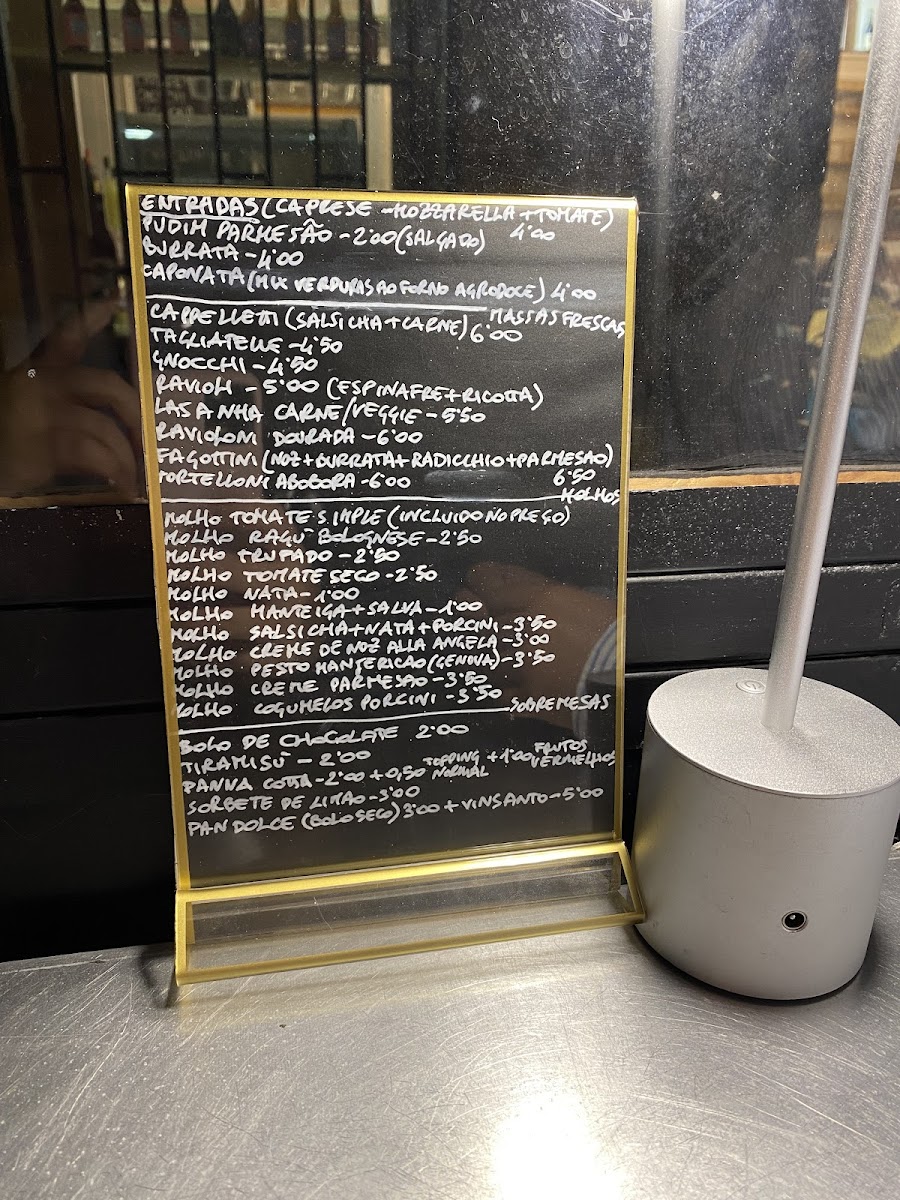 ENTRADAS (CAPRESE -MOZZARELLA+TOMATE)
PUDIM PARMESÃO -2'00 (SALGADO) 4'00
BURRATA -4'00
CAPONATA (MIX VERDURIS AO FORNO AGRODOCE) 4'00
MASSAS FRESCAS
CAPPELLETTI (SALSICHA+CARNE) 6'00
TAGLIATELLE -4'50
GNOCCHI -4'50
RAVIOLI -5'00 (ESPINAFRE+RICOTTA)
LASANHA CARNE/VEGGIE -5'50
RAVIOLONI DOURADA -6'00
FAGOTTINI (NOZ+BURRATA+RADICCHIO+PARMESAO)
TORTELLONI ABOBORA -6'00 6'50
MOLHOS
MOLHO TOMATE SIMPLE (INCLUIDO NO PREÇO)
MOLHO RAGÙ BOLOGNESE -2'50
MOLHO TRUFADO -2'50
MOLHO TOMATE SECO -2'50
MOLHO NATA -1'00
MOLHO MANTEIGA+SALVA -1'00
MOLHO SALSICHA+NATA+PORCINI -3'50
MOLHO CREME DE NOZ ALLA ANGELA -3'00
MOLHO PESTO MANJERICAO (GENOVA) -3'50
MOLHO CREME PARMESAO -3'50
MOLHO COGUMELOS PORCINI -3'50
SOBREMESAS
BOLO DE CHOCOLATE 2'00
TIRAMISÙ - 2'00
PANNA COTTA -2'00 +0,50 TOPPING NORMAL +1'00 FRUTOS VERMELHOS
SORBETE DE LIMAO -3'00
PAN DOLCE (BOLO SECO) 3'00 + VINSANTO -5'00